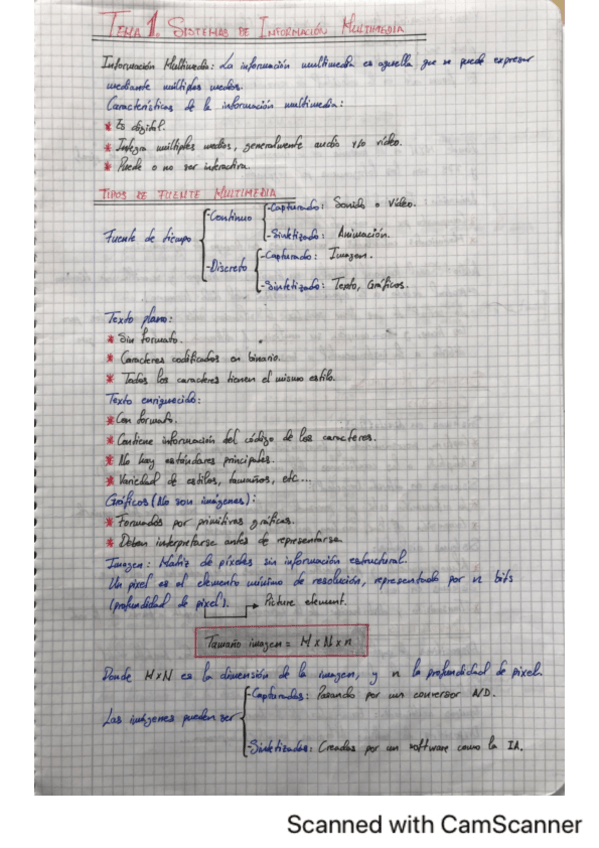 TEMA 1. SISTEMAS DE INFORMACIÓN MULTIMEDIA
Información Multimedia: La información multimedia es aquella que se puede expresar
mediante múltiples medios.
Características de la información multimedia:
* Es digital.
* Integra múltiples medios, generalmente audio y/o vídeo.
* Puede o no ser interactiva.
TIPOS DE FUENTE MULTIMEDIA
Fuente de tiempo
-Continuo
-Capturado: Sonido o Vídeo.
-Sintetizado: Animación.
-Discreto
-Capturado: Imagen.
-Sintetizado: Texto, Gráficos.
Texto plano:
* Sin formato.
* Caracteres codificados en binario.
* Todos los caracteres tienen el mismo estilo.
Texto enriquecido:
* Con formato.
* Contiene información del código de los caracteres.
* No hay estándares principales.
* Variedad de estilos, tamaños, etc...
Gráficos (No son imágenes):
* Formados por primitivas gráficas.
* Deben interpretarse antes de representarse.
Imagen: Matriz de píxeles sin información estructural.
Un pixel es el elemento mínimo de resolución, representado por n bits
(profundidad de pixel). → Picture element.
Tamaño imagen = M x N x n
Donde M x N es la dimensión de la imagen, y n la profundidad de pixel.
Las imágenes pueden ser
-Capturadas: Pasando por un conversor A/D.
-Sintetizadas: Creadas por un software como la IA.
Scanned with CamScanner